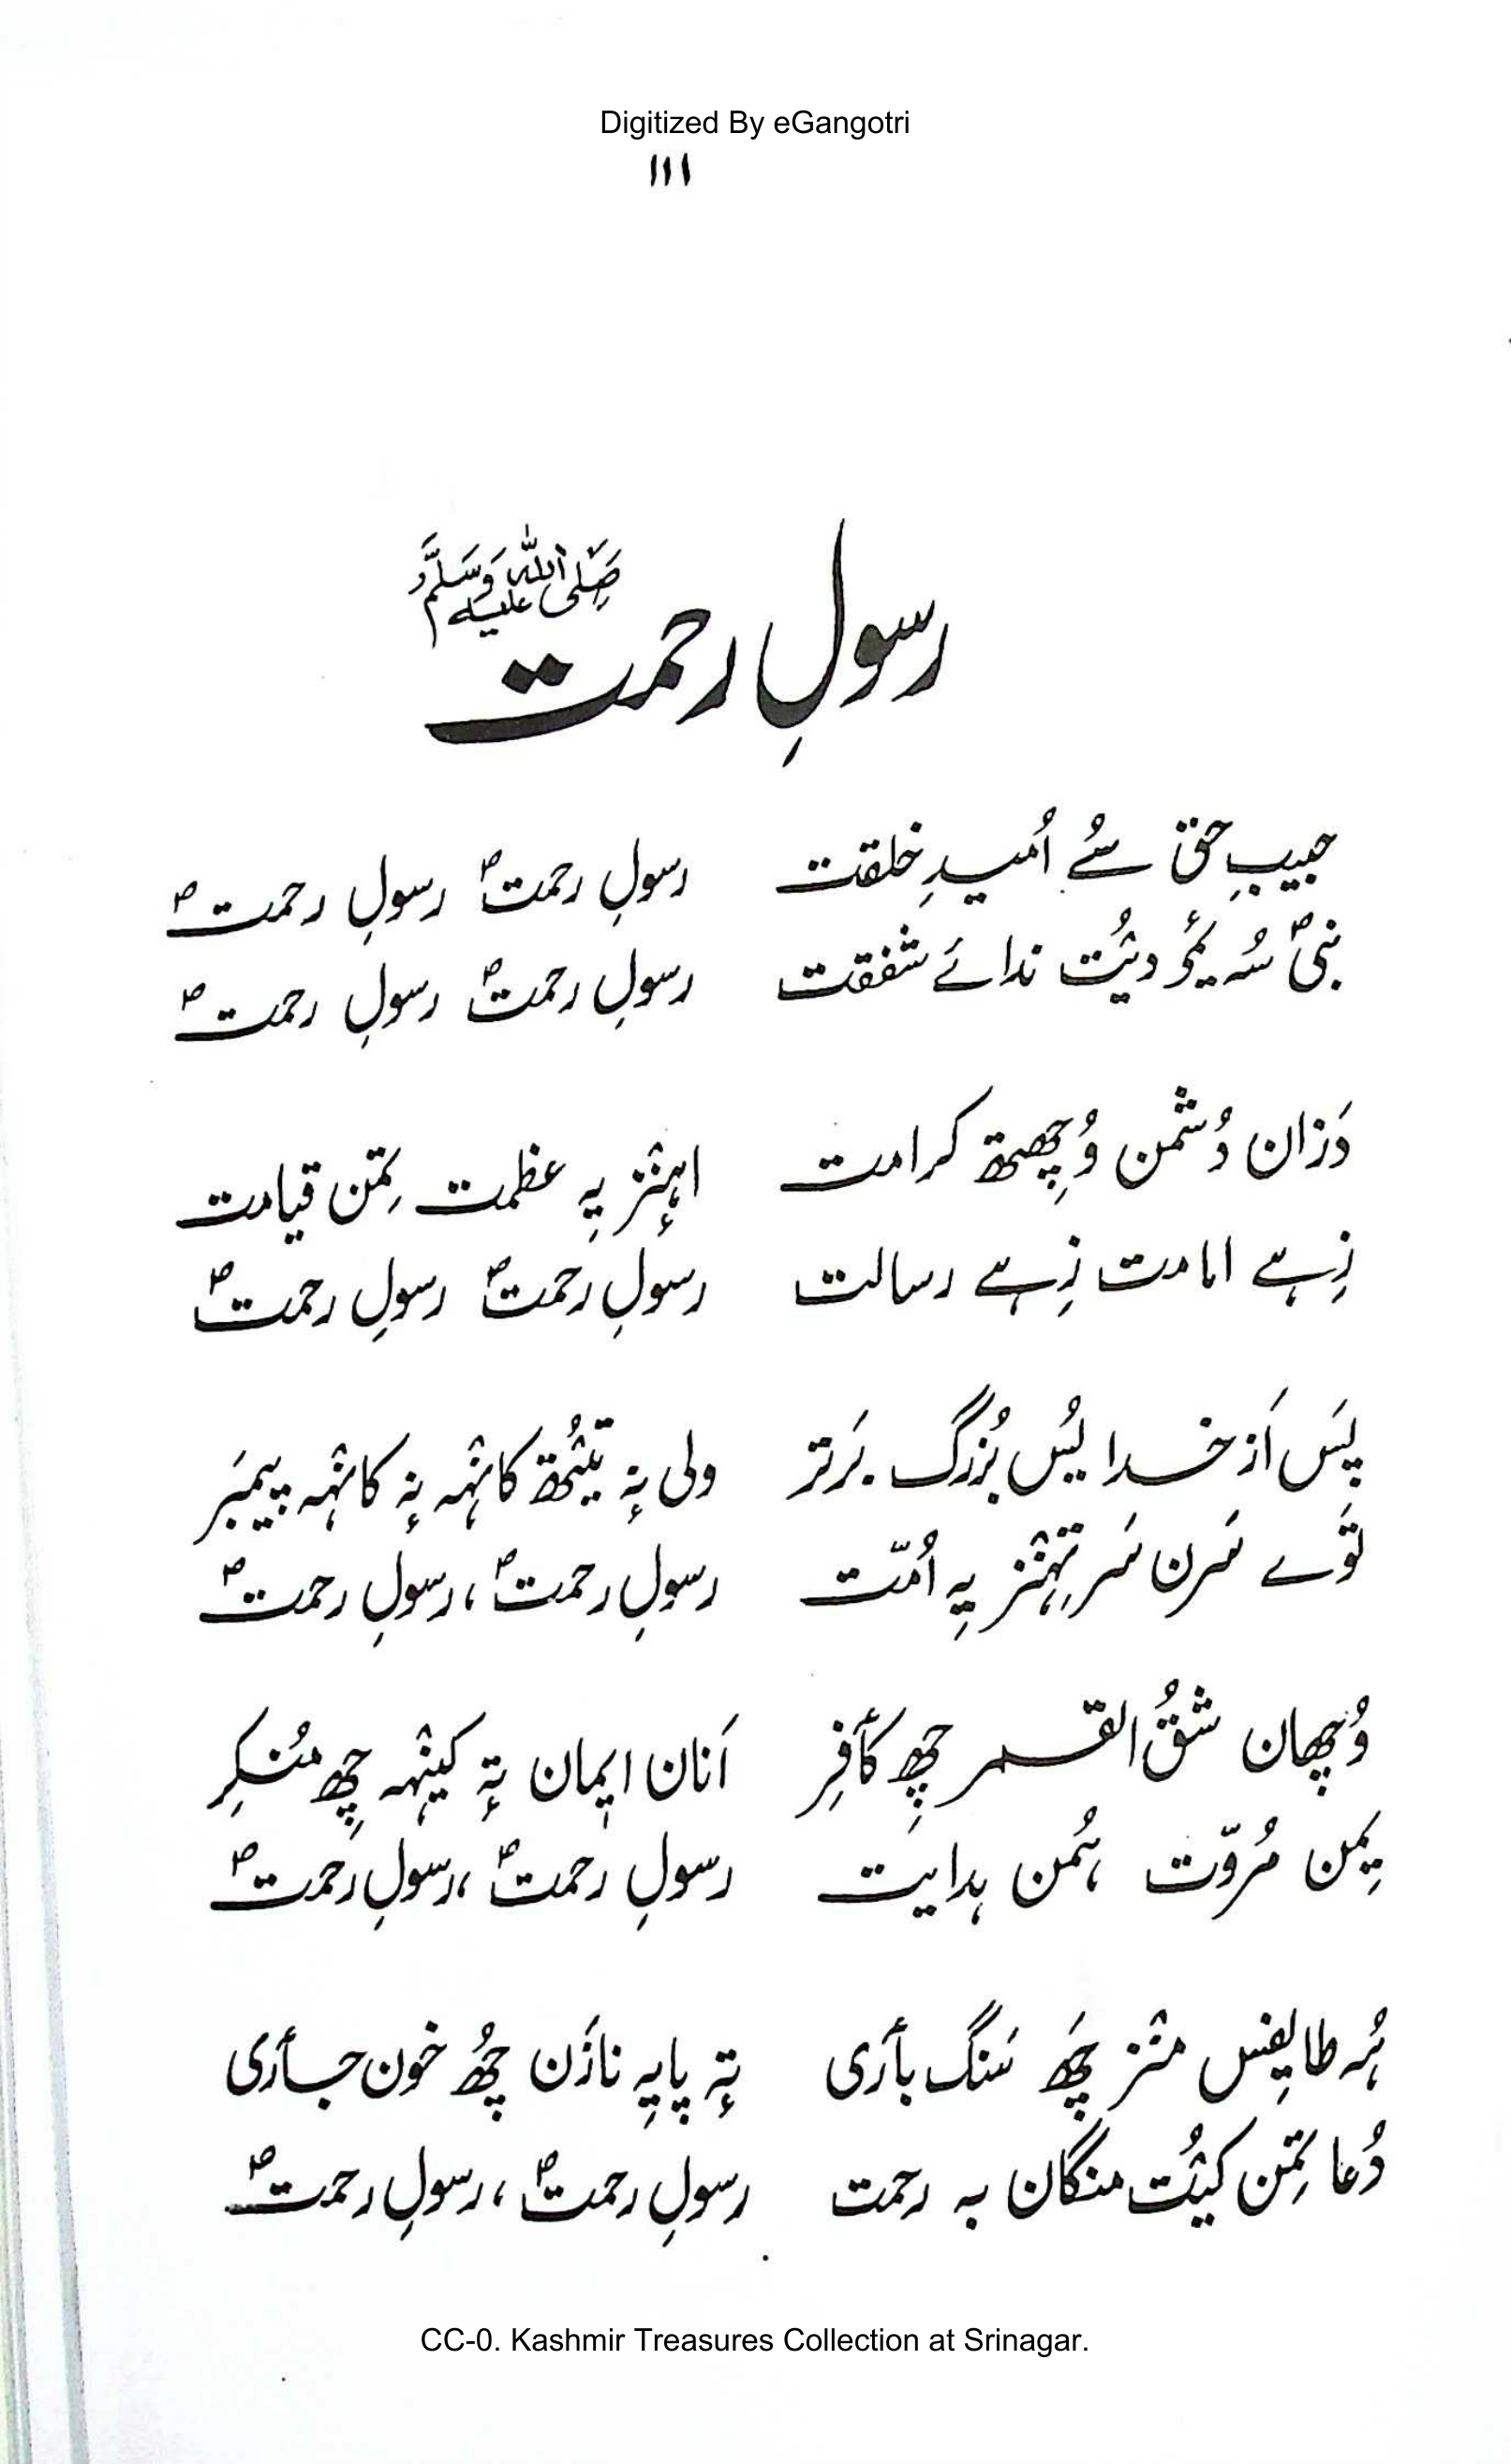 Digitized By eGangotri
۱۱۱
رسولِ رحمت صَلَّی اللہ علیہ وَسَلَّم
حبیبِ حق سُے اُمیدِ خلقت رسولِ رحمتؐ رسولِ رحمتؐ
نبیؐ سُہ یٔمۍ دیُت ندائے شفقت رسولِ رحمتؐ رسولِ رحمتؐ
دَزان دُشمن وُچھِتھ کرامت اہٕنٛز یہِ عظمت تِمَن قیامت
زِہے امامت زِہے رسالت رسولِ رحمتؐ رسولِ رحمتؐ
پَس اَز خدا یُس بُزرگ برَتر ولی نہٕ تیُتھ کانٛہہ نہٕ کانٛہہ پیمبَر
تَوے سَرن سَر تِہنٛز یہِ اُمّت رسولِ رحمتؐ، رسولِ رحمتؐ
وُچھان شقُ القمر چھِ کٲفِر اَنان ایٖمان تہٕ کینٛہہ چھِ مُنکِر
یِمن مُروّت ہُمن ہدایت رسولِ رحمتؐ، رسولِ رحمتؐ
ہُہ طایِفس منٛز چھَ سَنگ بأرَی تہٕ پاپہِ نازَن چھُ خون جأرَی
دُعا تِمَن کیُت منگان بہ رحمت رسولِ رحمتؐ، رسولِ رحمتؐ
CC-0. Kashmir Treasures Collection at Srinagar.